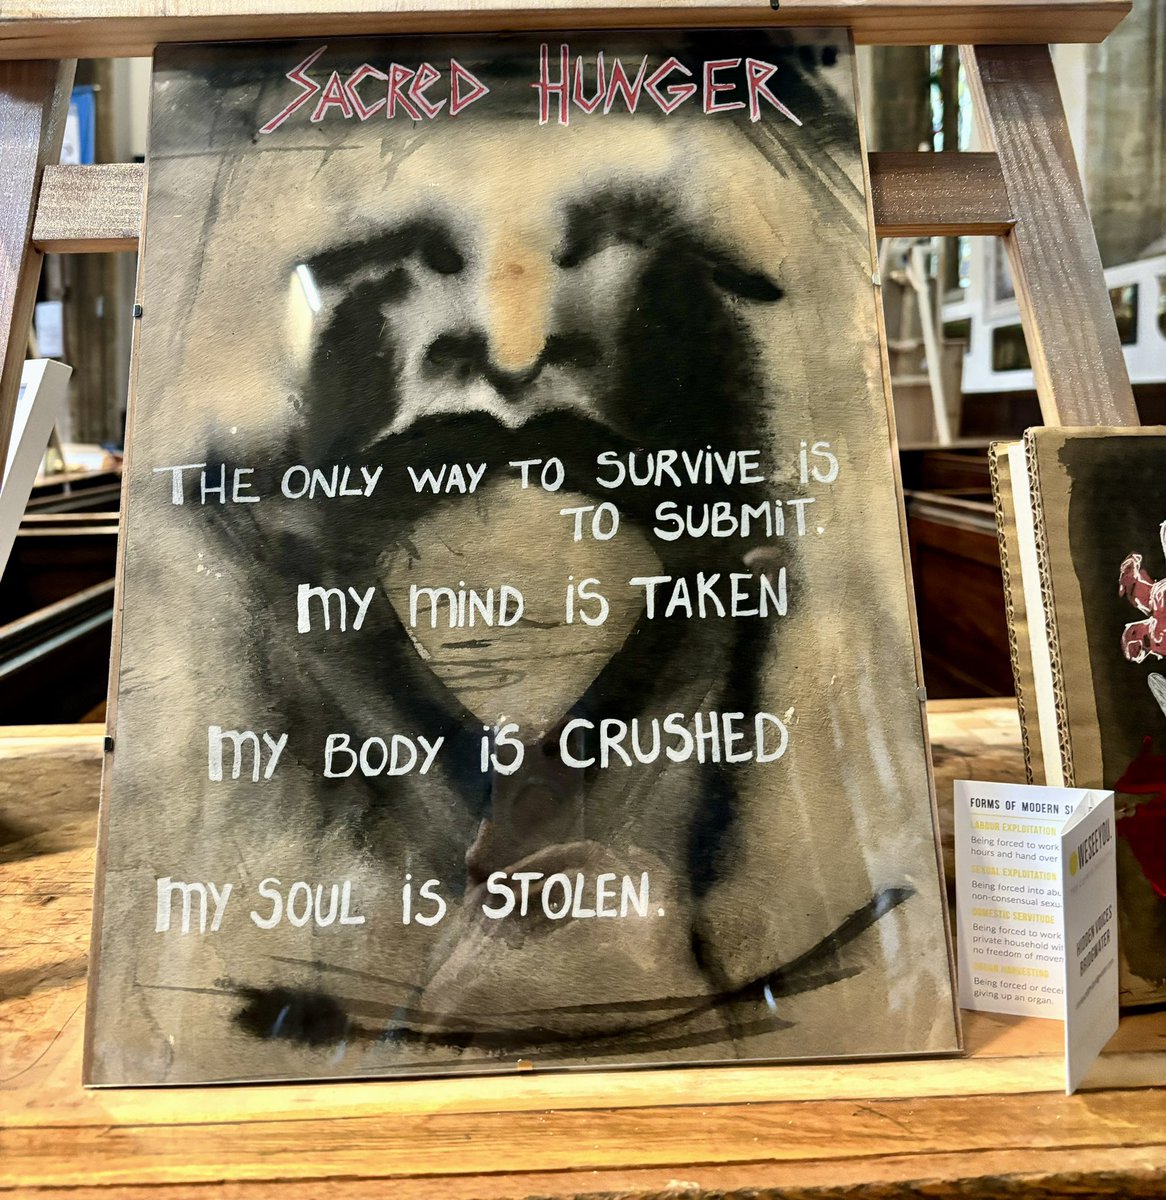 SACRED HUNGER
THE ONLY WAY TO SURVIVE IS
TO SUBMIT.
MY MIND IS TAKEN
MY BODY IS CRUSHED
MY SOUL IS STOLEN.
FORMS OF MODERN
LABOUR EXPLOITATION
Being forced to work
hours and hand over
SEXUAL EXPLOITATION
Being forced into
non-consensual
DOMESTIC SERVITUDE
Being forced to work
private household
no freedom of
ORGAN HARVESTING
Being forced or
giving up an organ.
WESEEYOU.
HIDDEN VOICES
BRIDGWATER